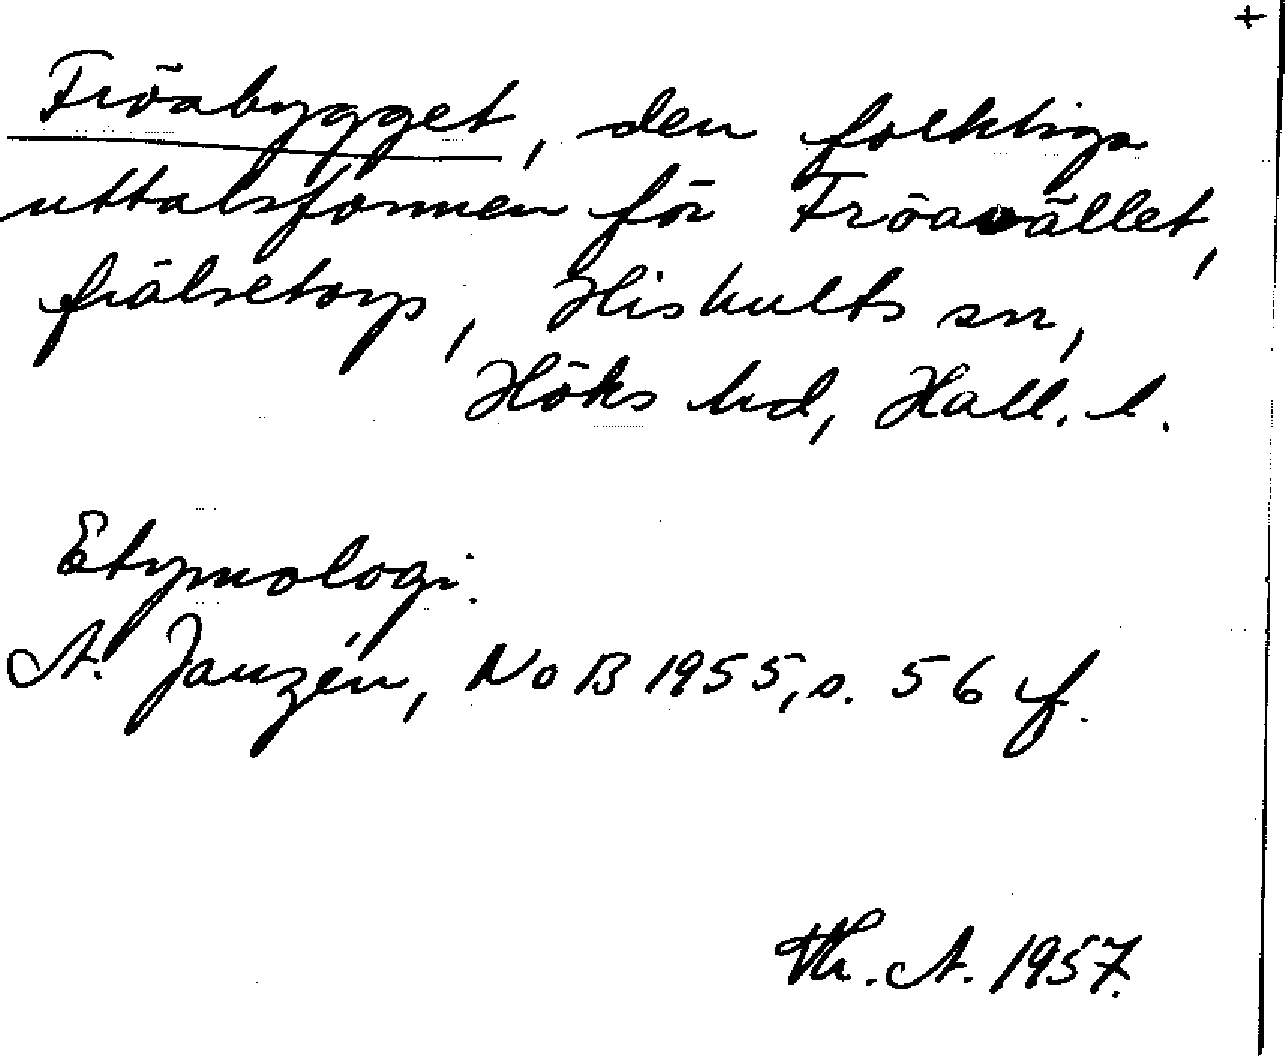 +
Fröabygget, den folkliga
uttalsformen för Fröavället,
frälsetorp, Hishults sn,
Höks hd, Hall. l.
Etymologi.
A. Janzén, NoB 1955, s. 56 f.
Th. A. 1957.